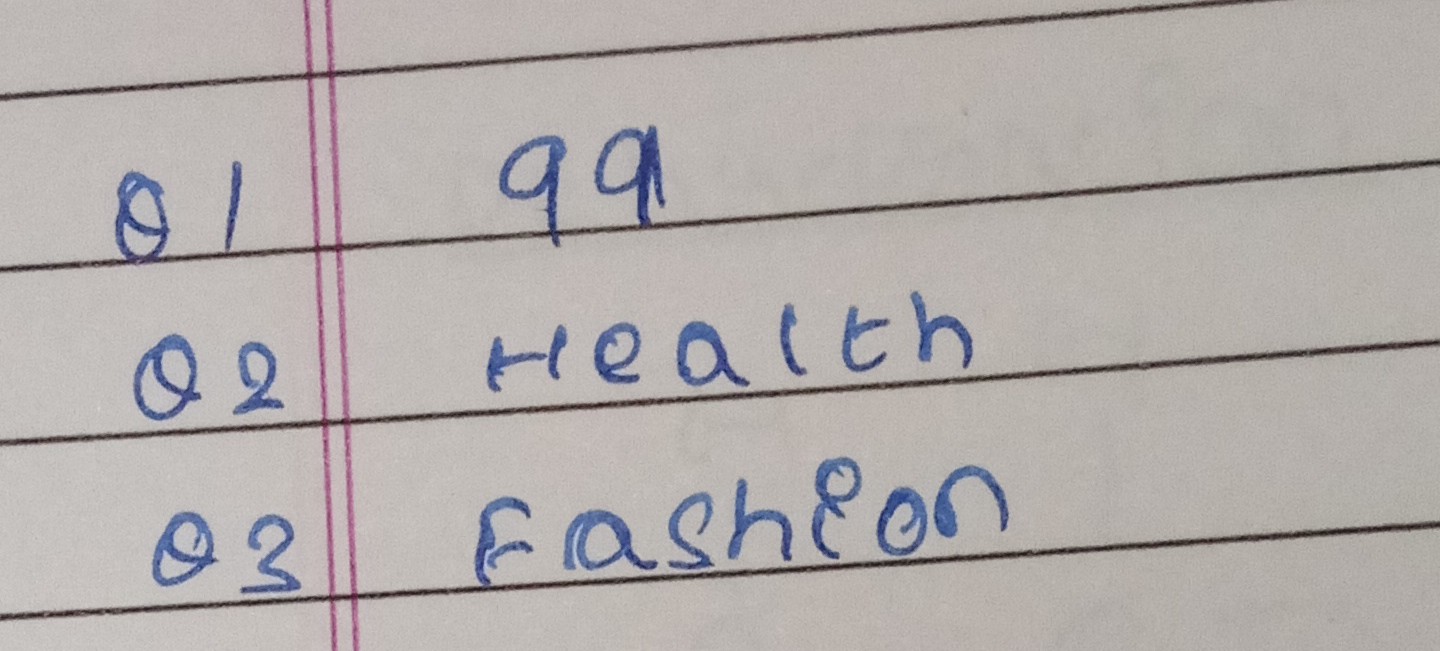 Q1 99
Q2 Health
Q3 Fashion